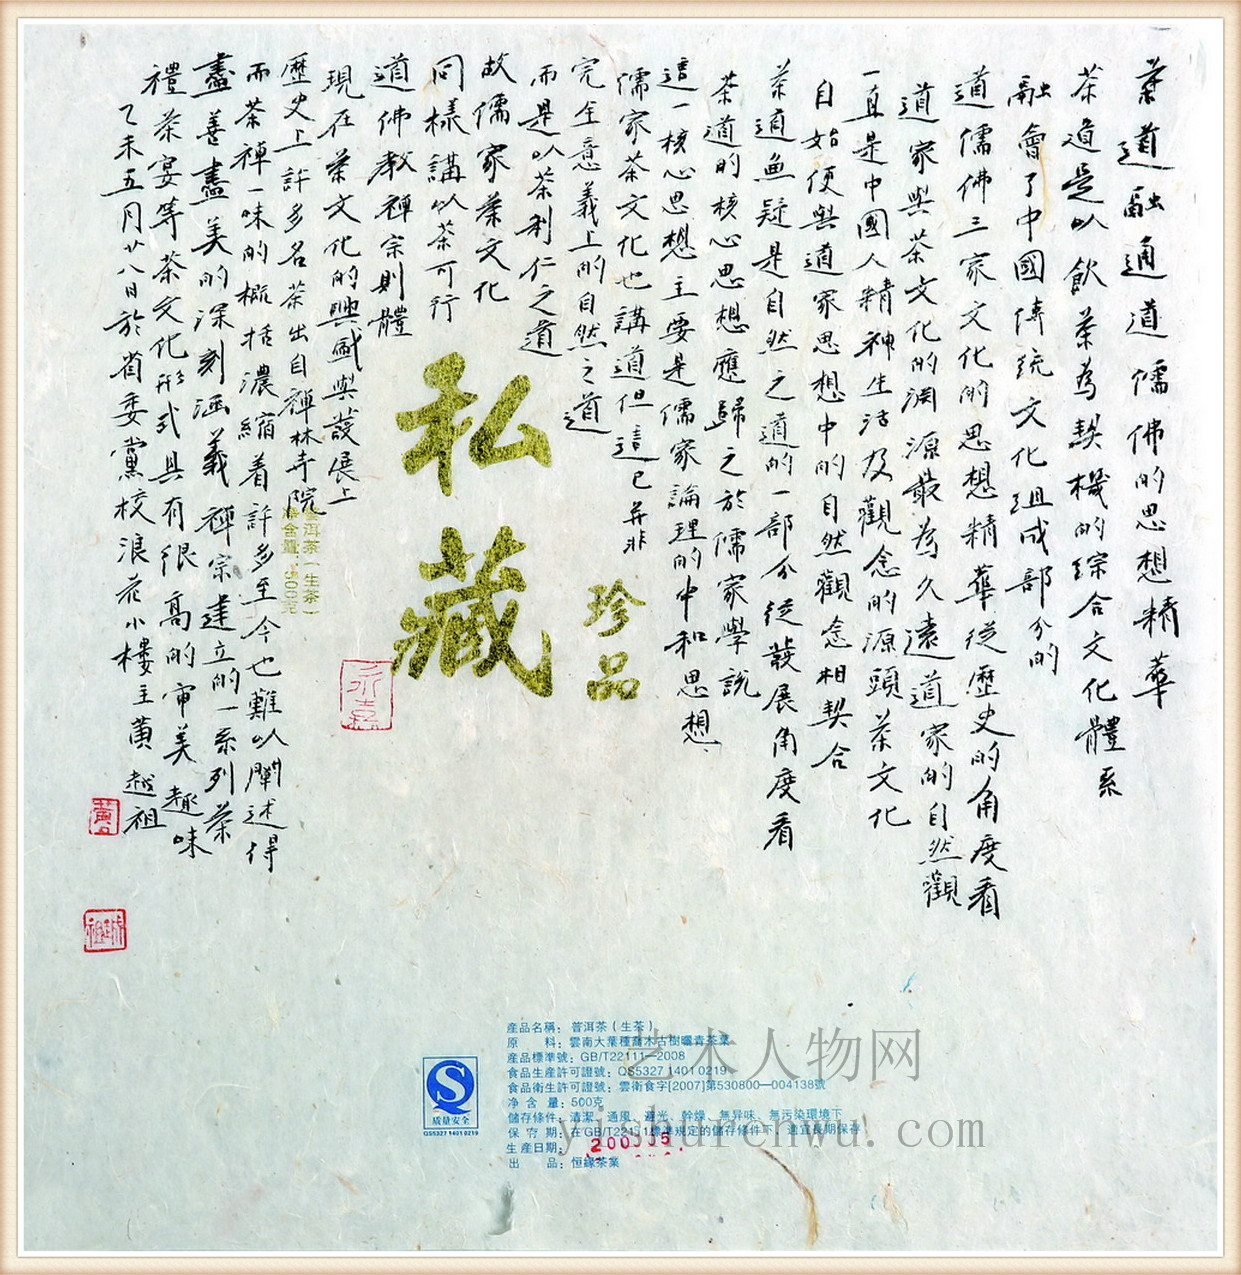 茶道融通道儒佛的思想精華
茶道是以飲茶為契機的綜合文化體系
融會了中國傳統文化組成部分的
道儒佛三家文化的思想精華從歷史的角度看
道家與茶文化的淵源最為久遠道家的自然觀
一直是中國人精神生活及觀念的源頭茶文化
自始便與道家思想中的自然觀念相契合
茶道無疑是自然之道的一部分從發展角度看
茶道的核心思想應歸之於儒家學說
這一核心思想主要是儒家論理的中和思想
儒家茶文化也講道但這已并非
完全意義上的自然之道
而是以茶利仁之道
故儒家茶文化
同樣講以茶可行
道佛教禪宗則體
現在茶文化的興盛與發展上
歷史上許多名茶出自禪林寺院
而茶禪一味的概括濃縮着許多至今也難以闡述得
盡善盡美的深刻涵義禪宗建立的一系列茶
禮茶宴等茶文化形式具有很高的审美趣味
乙未五月廿八日於省委黨校浪花小樓主黃越祖
私藏
珍品
普洱茶(生茶)
净含量:500克
產品名稱: 普洱茶(生茶)
原 料: 雲南大葉種喬木古樹曬青茶葉
產品標準號: GB/T22111—2008
食品生産許可證號: QS5327 1401 0219
食品衛生許可證號: 雲衛食字[2007]第530800—004138號
净 含 量: 500克
儲存條件: 清潔、通風、避光、幹燥、無异味、無污染環境下
保 存 期: 在GB/T22111標準規定的儲存條件下, 適宜長期保存
生産日期:
出 品: 恒緣茶業
质量安全
QS5327 1401 0219
艺术人物网
yishurenwu.com